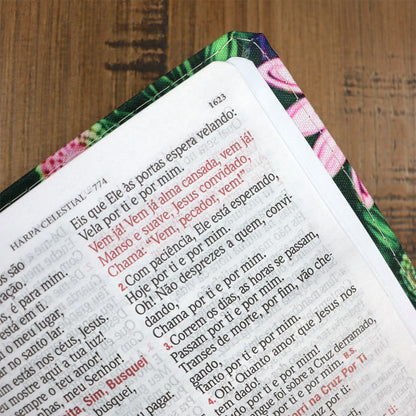 HARPA CELESTIAL - 774
1623
são
ração.
é para mim.
está em ti.
o meu lugar,
no santo lar.
estás nos céus, Jesus.
mostre aqui a tua luz
sempre o teu amor!
meu Senhor!
Sim, Busquei
Eis que Ele às portas espera velando:
Vela por ti e por mim.
Vem já! Vem já alma cansada, vem já!
Manso e suave, Jesus convidado,
Chama: "Vem, pecador, vem!"
2 Com paciência, Ele está esperando,
Hoje por ti e por mim.
Oh! Não desprezes a quem, convi-
dando,
Chama por ti e por mim.
3 Correm os dias, as horas se passam,
Passam por ti e por mim.
Transes de morte, por fim, vão che-
gando,
Tanto por ti e por mim.
4 Oh! Quanto amor que Jesus nos
tem dado!
sobre a Cruz derramado,
por mim.
B.S.
na Cruz Por Ti